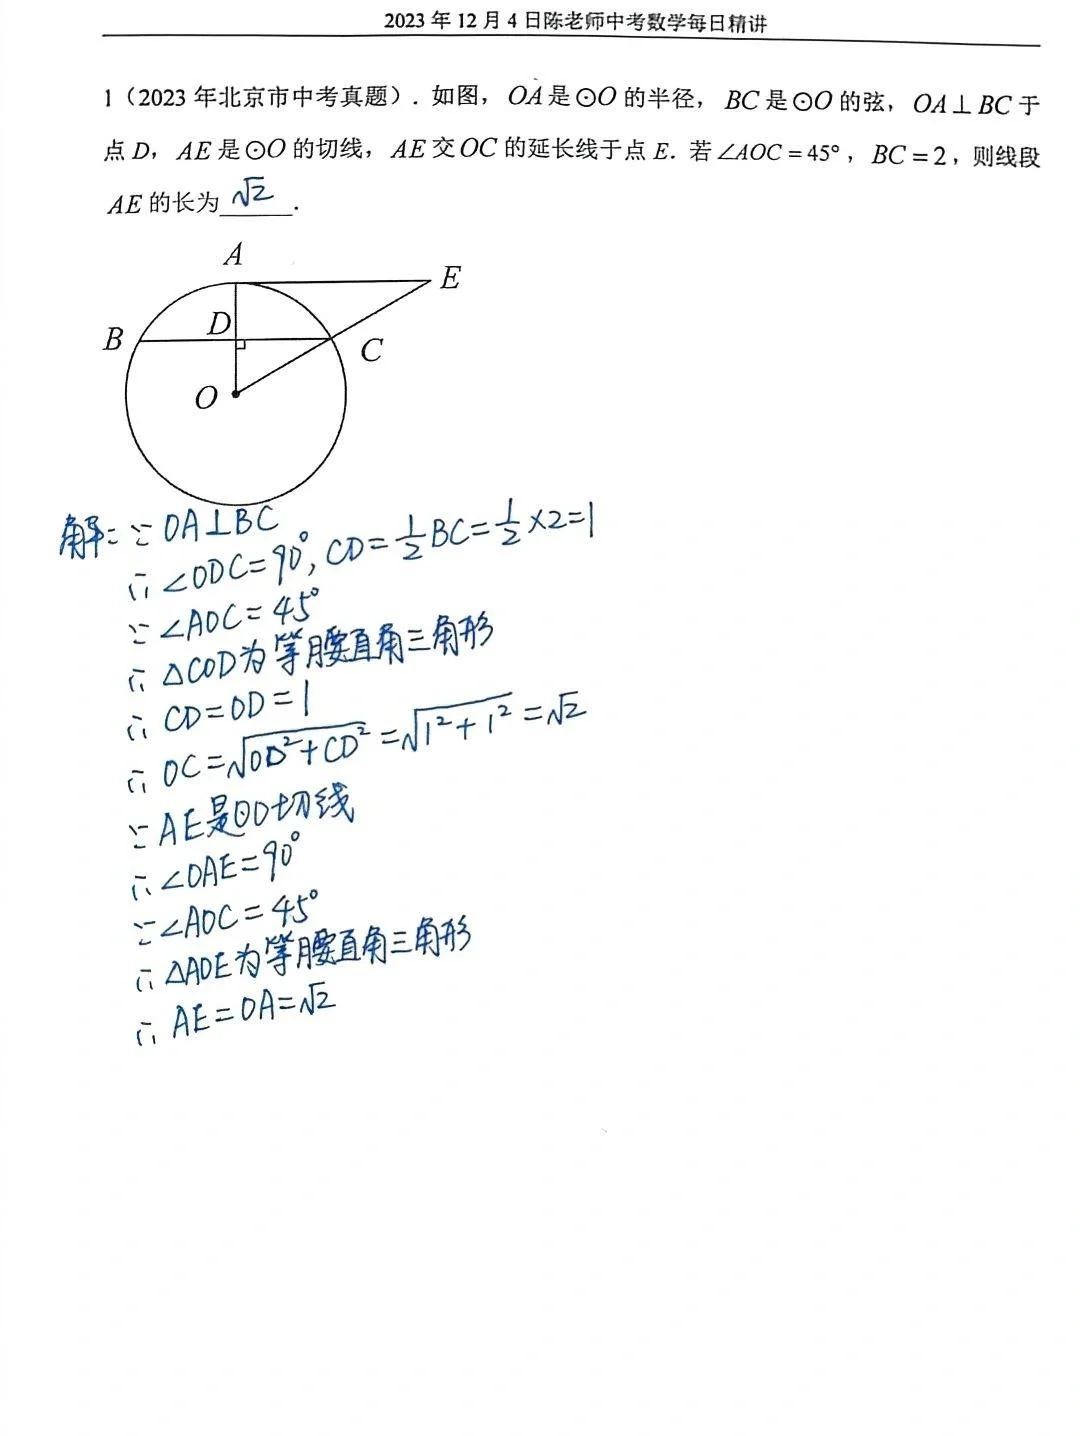 2023年12月4日陈老师中考数学每日精讲
1（2023年北京市中考真题）．如图，OA是⊙O的半径，BC是⊙O的弦，OA⊥BC于
点D，AE是⊙O的切线，AE交OC的延长线于点E．若∠AOC=45°，BC=2，则线段
AE的长为√2．
A
E
D
B
C
O
解：∵OA⊥BC
∴∠ODC=90°，CD=1/2BC=1/2×2=1
∵∠AOC=45°
∴△COD为等腰直角三角形
∴CD=OD=1
∴OC=√(OD²+CD²)=√(1²+1²)=√2
∵AE是⊙O切线
∴∠OAE=90°
∵∠AOC=45°
∴△AOE为等腰直角三角形
∴AE=OA=√2